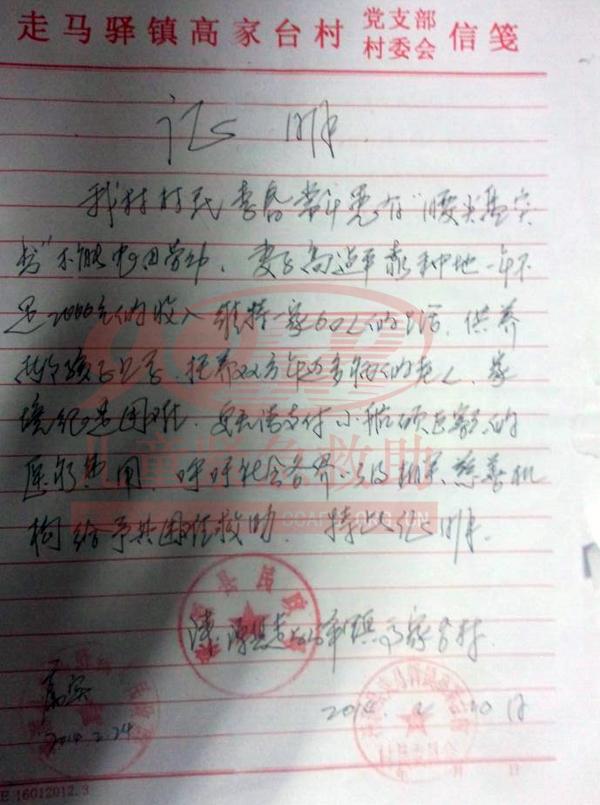 走马驿镇高家台村 党支部 村委会 信笺
证明
我村村民李春常计患有"腰尖盘突
出"不能常用劳动,妻子高迎平靠种地一年不
足2000元的收入维持一家6口人的生活,供养
两个孩子上学,抚养双方年迈多病的老人,家
境纪是困难,无法支付小 硕巨额的
医疗费用,呼吁社会各界人及相关慈善机
构给予其困难救助 特此证明
涞源县走马驿镇高家台村
属实
2014.2.24
2014. 2. 20日
儿童紧急救助
E 16012012.3